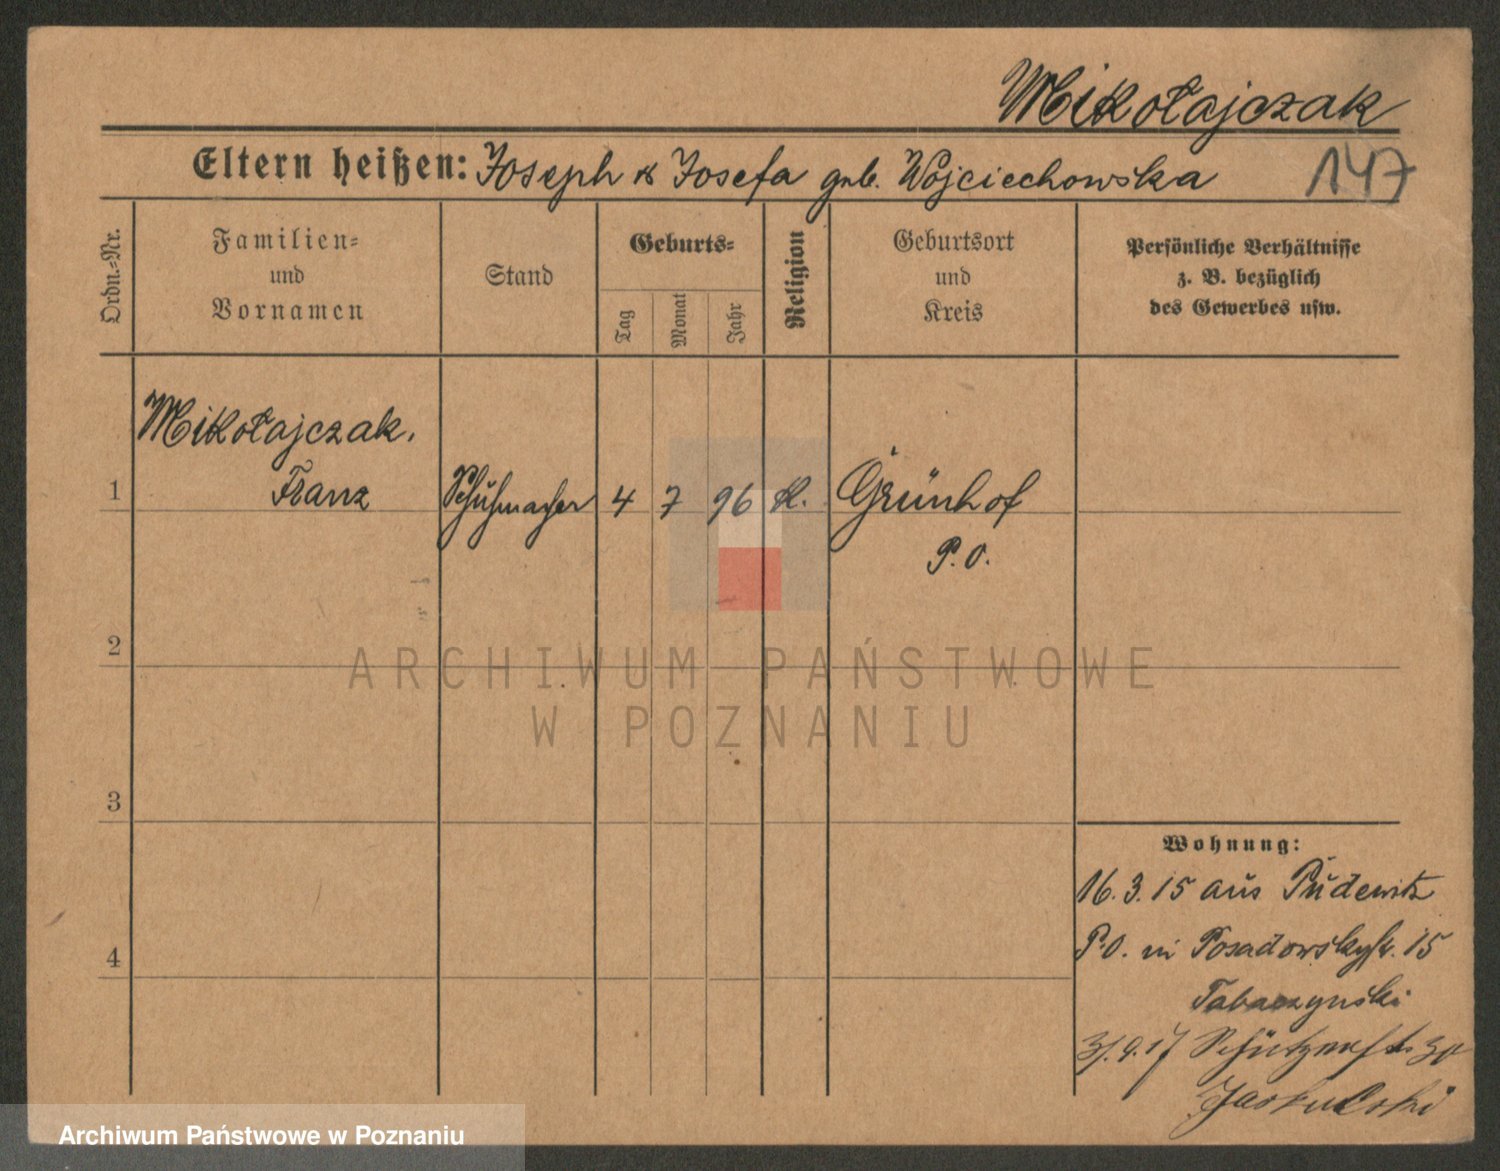 Mikołajczak
Eltern heißen: Joseph & Josefa geb. Wojciechowska
147
Ordn.-Nr.
Familien-
und
Vornamen
Stand
Geburts-
Tag
Monat
Jahr
Religion
Geburtsort
und
Kreis
Persönliche Verhältnisse
z. B. bezüglich
des Gewerbes usw.
Mikołajczak.
1 Franz Schuhmacher 4 7 96 k. Grünhof
P. O.
2
ARCHIWUM PAŃSTWOWE
W POZNANIU
3
Wohnung:
16.3.15 aus Pudewitz
P.O. in Posadowskystr. 15
Tabaczynski
4
17 Schützenstr. 30
Archiwum Państwowe w Poznaniu